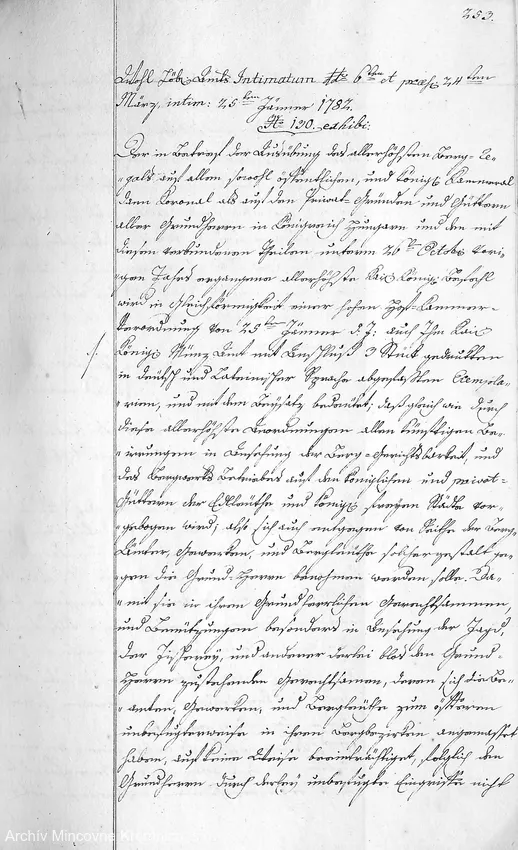 253.
Wohl Löbl. Amts Intimatum ddo 6ten et præs. 24ten
März, intim: 25ten Jänner 1782.
No 130. exhibi:
Der in Betref der Ausübung des allerhöchsten Berg-Re-
-gals auf allen sowohl öffentlichen, und königl. Kammeral
dann Koronal als auf den Privat-Gründen und Güttern
aller Grundherrn in Königreich Hungarn und den mit
diesen verbundenen Theilen unterm 26ten Octobr. vori-
gen Jahrs ergangene allerhöchste Kais. Königl. Befehl
wird in Gleichförmigkeit einer hohen Hof-Kammer-
Verordnung von 25ten Jänner d. J. auch Ihm Kais.
Königl. Münz Amt mit Anschluß 3 Stück gedruckten
in deutsch und Lateinischer Sprache abgefaßten Exempla-
-rien, und mit dem Beysatz bedeutet; daß gleich wie durch
diese allerhöchste Verordnungen allen künftigen Be-
-irrungen in Ansehung der Berg-Gerichtsbarkeit, und
des Bergwerks Betriebes auf den königlichen und privat-
Güttern der Edlleuthe und königl. freyen Städte vor-
-gebogen wird; also sich auch entgegen von Seithe der Berg-
Ämter, Gewerken, und Bergleuthe solchergestalt ge-
gen die Grund-Herrn benohmen werden solle. Da-
-mit sie in ihren Grundherrlichen Gerechtsammen,
und Benützungen besonders in Ansehung der Jagd,
der Fischerey, und anderer derlei blos den Grund-
Herrn zustehenden Gerechtsamen, deren sich die Be-
-amten, Gewerken, und Bergleuthe zum öftern
unbefugterweise in ihren Bergbezirken angemasset
haben, auf keine Weise beeinträchtiget, folglich den
Grundherrn durch derley unbefugte Eingriffe nicht
Archiv Mincovne